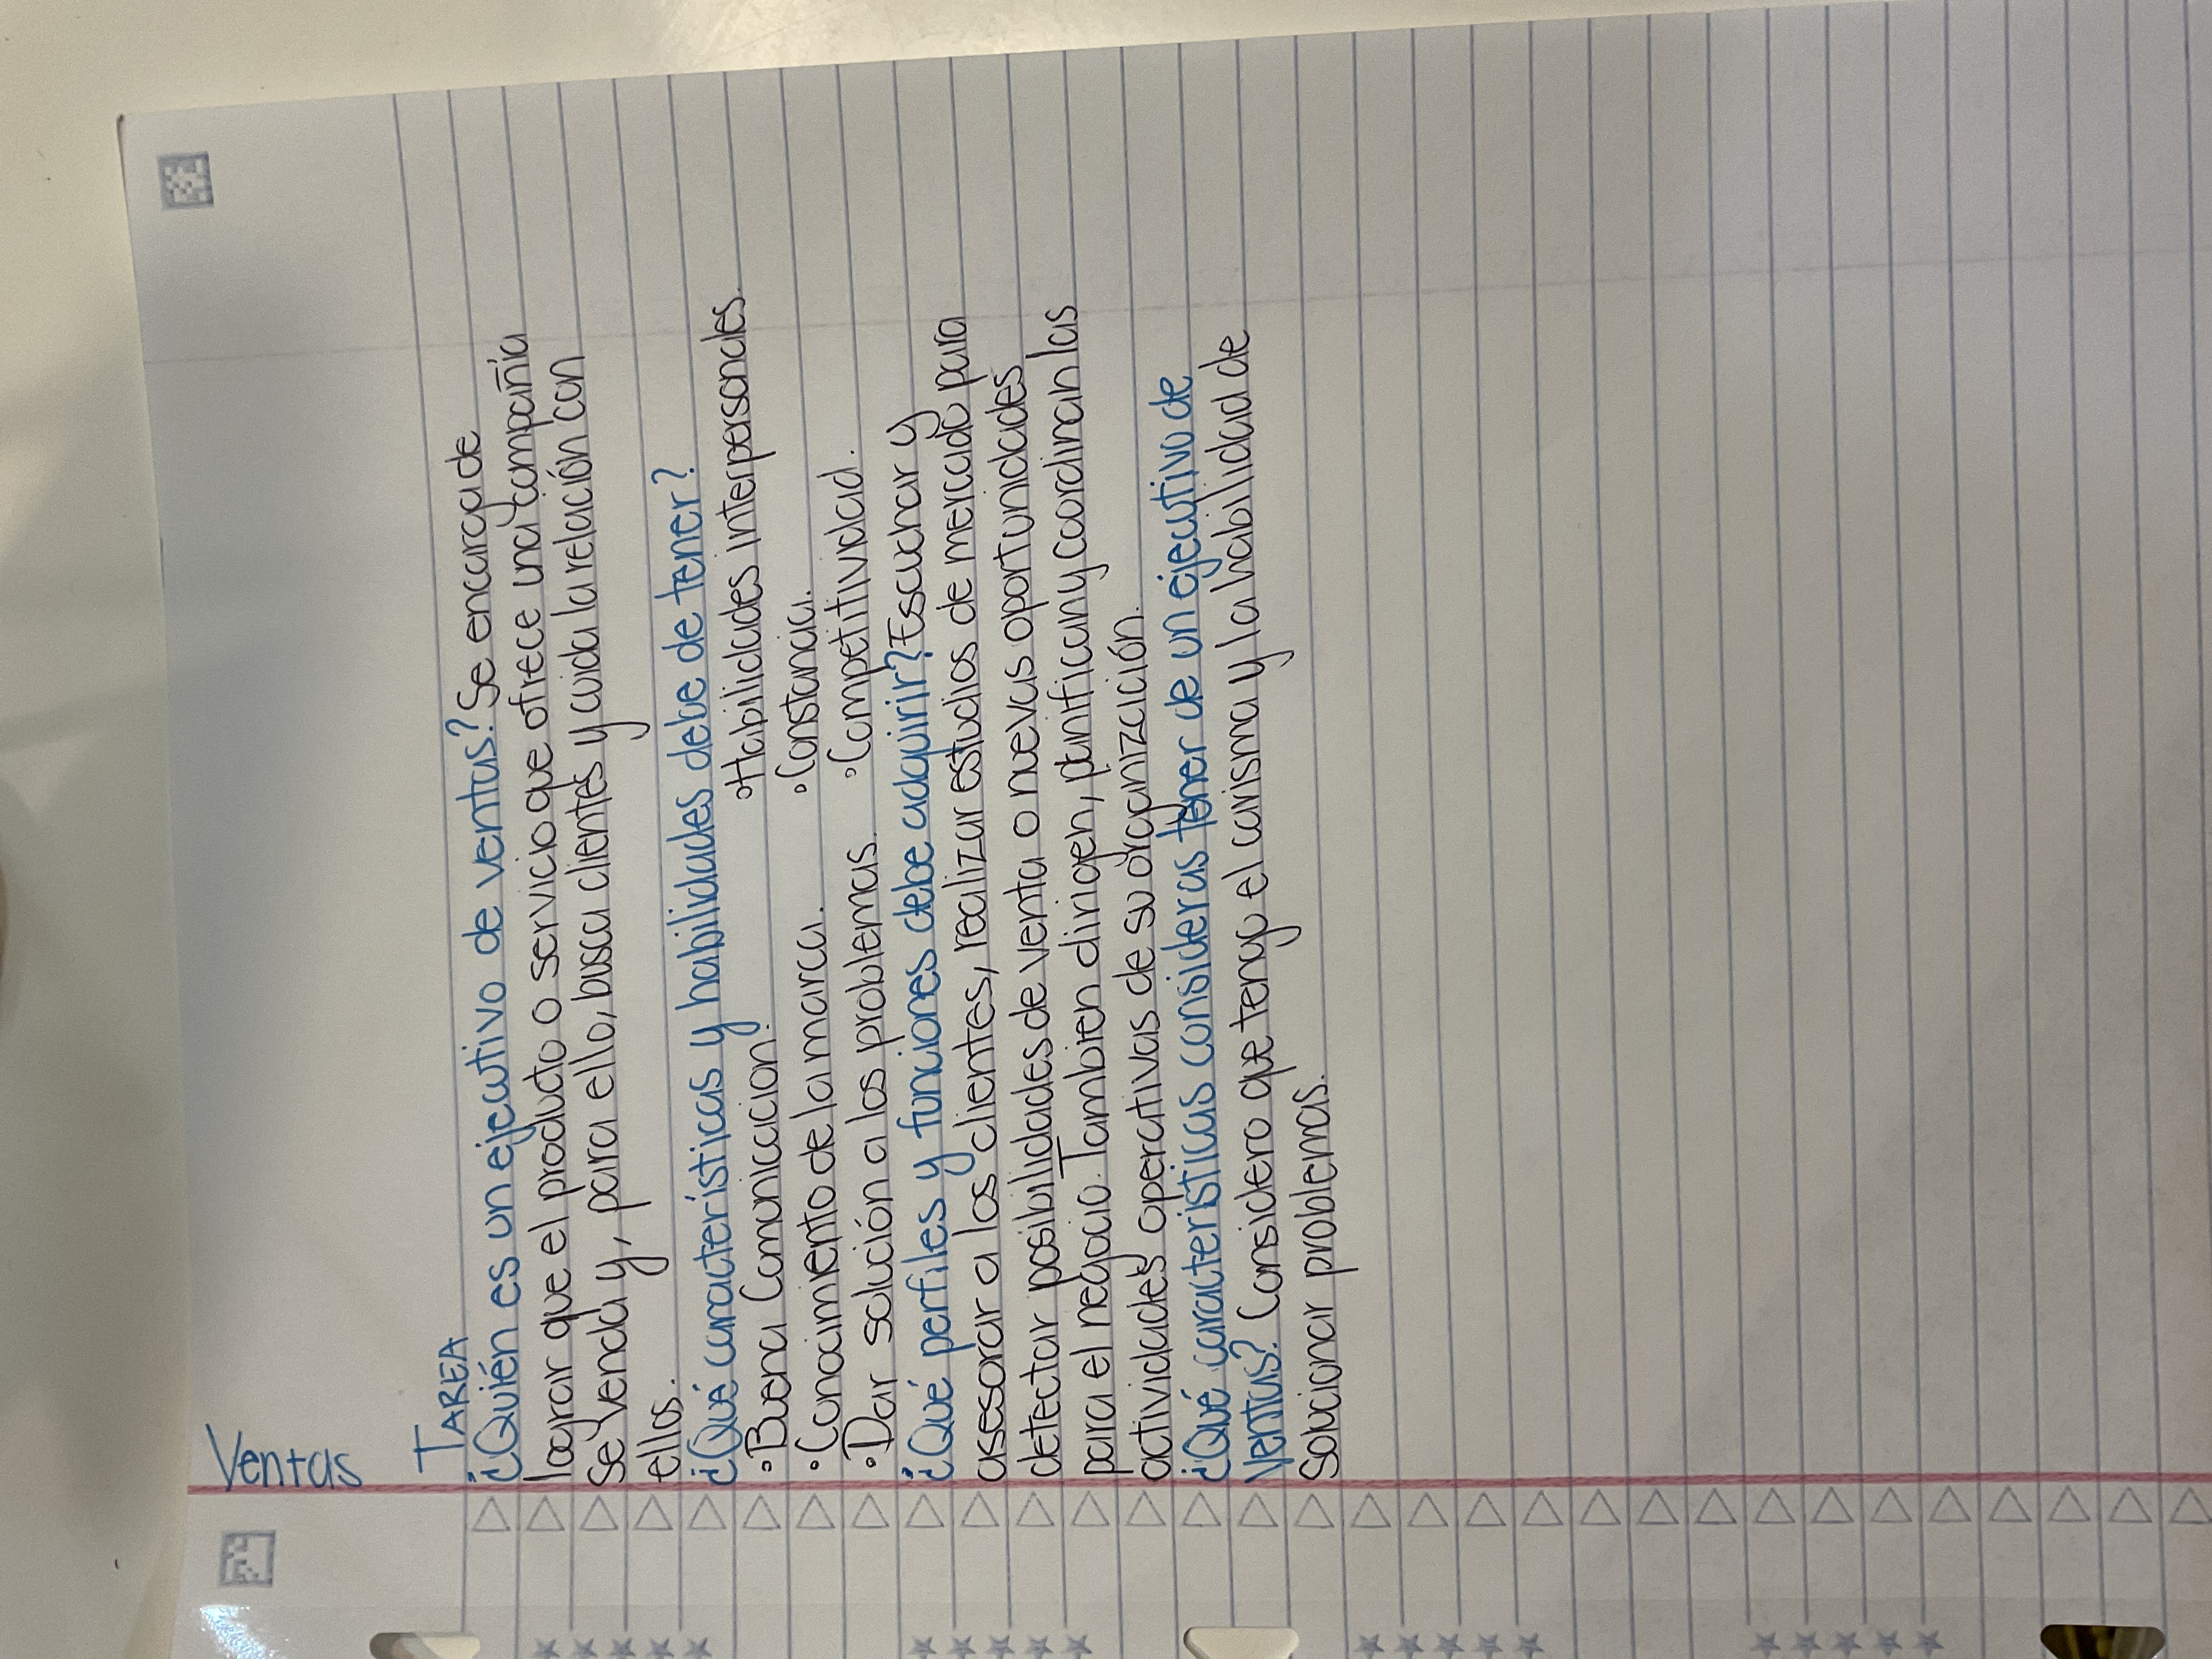 Ventas
TAREA
¿Quién es un ejecutivo de ventas? Se encarga de
lograr que el producto o servicio que ofrece una compañía
se venda y, para ello, busca clientes y cuida la relación con
ellos.
¿Qué características y habilidades debe de tener?
• Buena Comunicacion. • Habilidades interpersonales.
• Conocimiento de la marca. • Constancia.
• Dar solución a los problemas. • Competitividad.
¿Qué perfiles y funciones debe adquirir? Escuchar y
asesorar a los clientes, realizar estudios de mercado para
detectar posibilidades de venta o nuevas oportunidades
para el negocio. Tambien dirigen, planifican y coordinan las
actividades operativas de su organización.
¿Qué caracteristicas consideras tener de un ejecutivo de
ventas? Considero que tengo el carisma y la habilidad de
solucionar problemas.